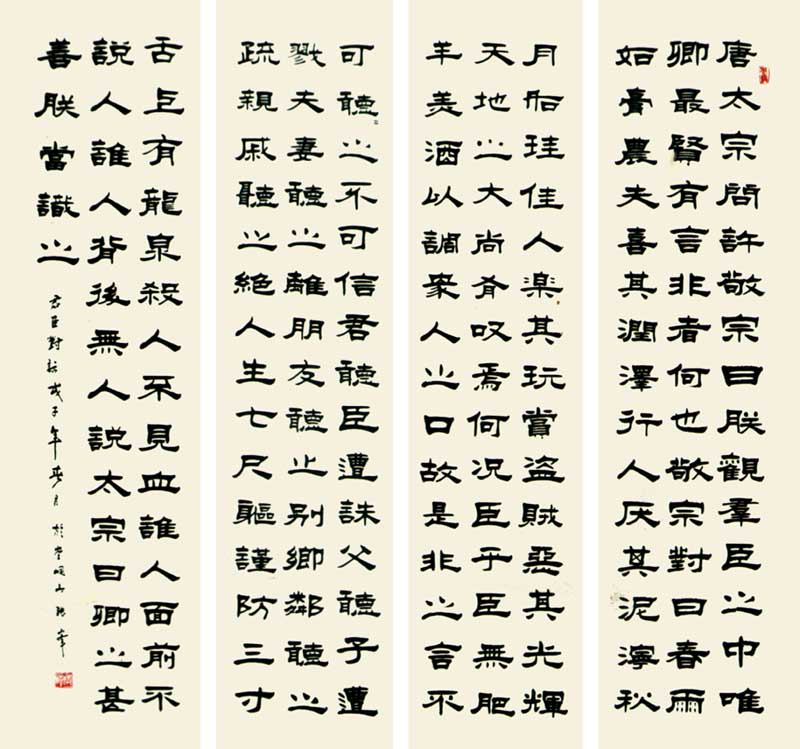 唐太宗問許敬宗曰朕觀羣臣之中唯
卿最賢有言非者何也敬宗對曰春雨
如膏農夫喜其潤澤行人厌其泥濘秋
月如珪佳人楽其玩賞盜賊惡其光輝
天地之大尚有叹焉何况臣乎臣無肥
羊羙酒以調衆人之口故是非之言不
可聽之不可信君聽臣遭誅父聽子遭
戮夫妻聽之離朋友聽之别鄉鄰聽之
疏親戚聽之絕人生七尺軀謹防三寸
舌上有龍泉殺人不見血誰人面前不
說人誰人背後無人說太宗曰卿之甚
善朕當識之
君臣對話戊子年月於山